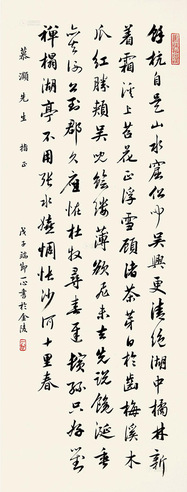 餘杭自是山水窟仄聞吳興更清絕湖中橘林新
著霜溪上苕花正浮雪顧渚茶芽白於齒梅溪木
瓜紅勝頰吳兒鱠縷薄欲飛未去先說饞涎垂
亦知謝公到郡久應怪杜牧尋春遲鬢絲只好對
禪榻湖亭不用張水嬉惆悵沙河十里春
戊子端節一心書於金陵
慕灝先生指正